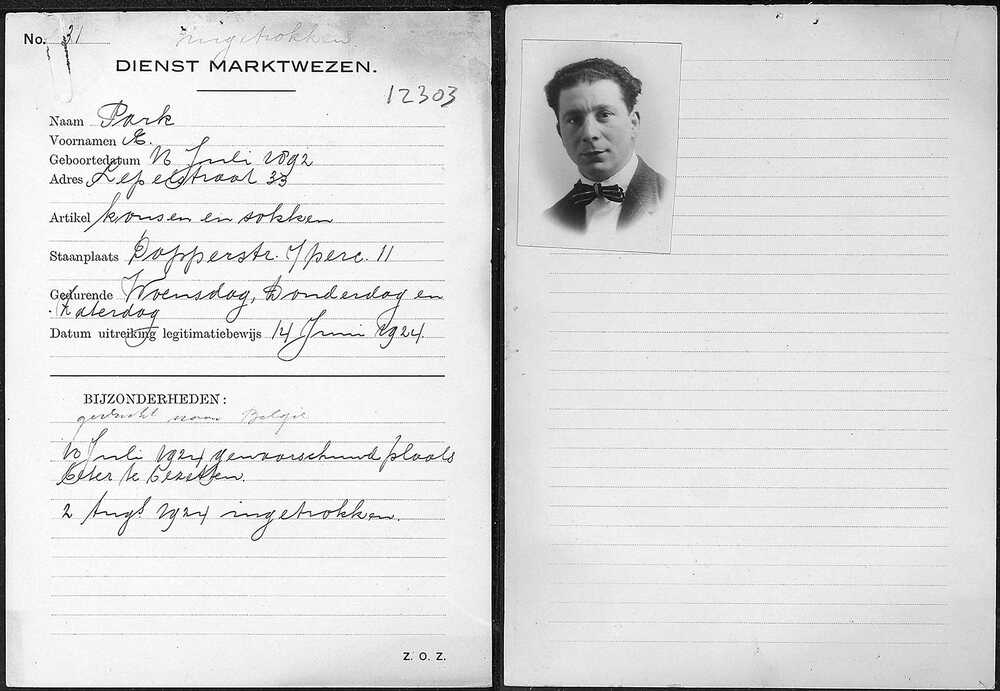 No. 31 Ingetrokken
DIENST MARKTWEZEN.
12303
Naam Park
Voornamen E.
Geboortedatum 12 Juli 1892
Adres Lepelstraat 33
Artikel kousen en sokken
Staanplaats Dapperstr. t/perc. 11
Gedurende Woensdag, Donderdag en
Zaterdag
Datum uitreiking legitimatiebewijs 14 Juni 1924.
BIJZONDERHEDEN:
naar België
12 Juli 1924 gewaarschuwd plaats
beter te bezetten.
2 Augs. 1924 ingetrokken.
Z. O. Z.